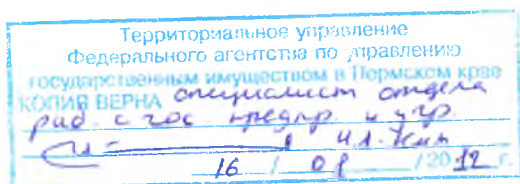 Территориальное управление
Федерального агентства по управлению
государственным имуществом в Пермском крае
КОПИЯ ВЕРНА специалист отдела
раб. с гос. предпр. и учр.
16 / 0 / 2012 г.